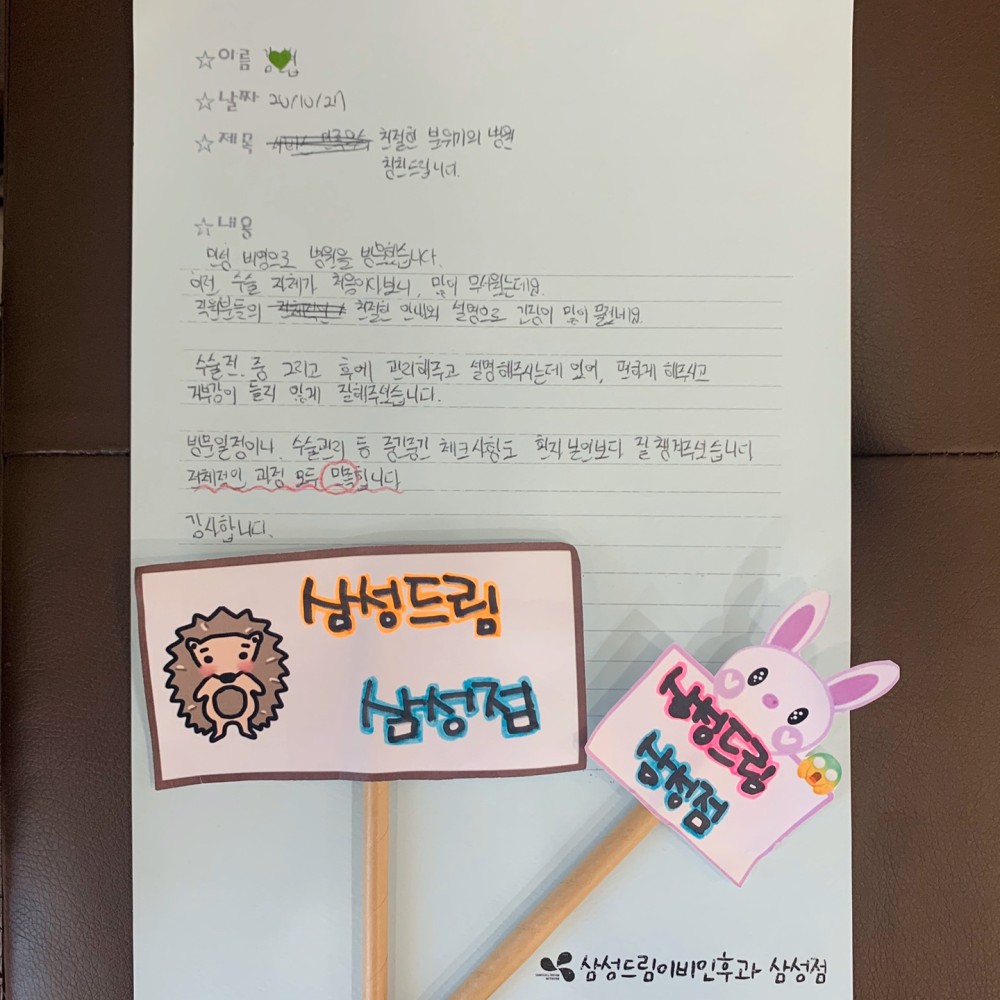 ☆이름 김💚섭
☆날짜 20/10/27
☆제목 친절한 분위기의 병원
칭찬드립니다.
☆내용
만성 비염으로 병원을 방문했습니다.
이런, 수술 자체가 처음이다보니, 많이 무서웠는데요.
직원분들의 친절한 안내와 설명으로 긴장이 많이 풀렸네요.
수술전. 중 그리고 후에 관리해주고 설명해주시는데 있어, 편하게 해주시고
거부감이 들지 않게 잘해주셨습니다.
방문일정이나. 수술관리 등 중간중간 체크사항도 환자 본인보다 잘 챙겨주셨습니다
전체적인 과정 모두 만족합니다
감사합니다.
삼성드림
삼성점
삼성드림
삼성점
삼성드림이비인후과 삼성점